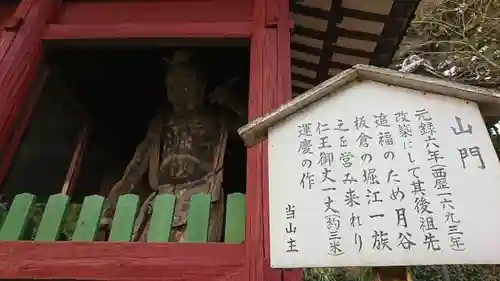 山門
元録六年(西歴一六九三年)
改築にして其後祖先
追福のため月谷
板倉の堀江一族
之を営み来れり
仁王御丈一丈(約三米)
運慶の作
当山主